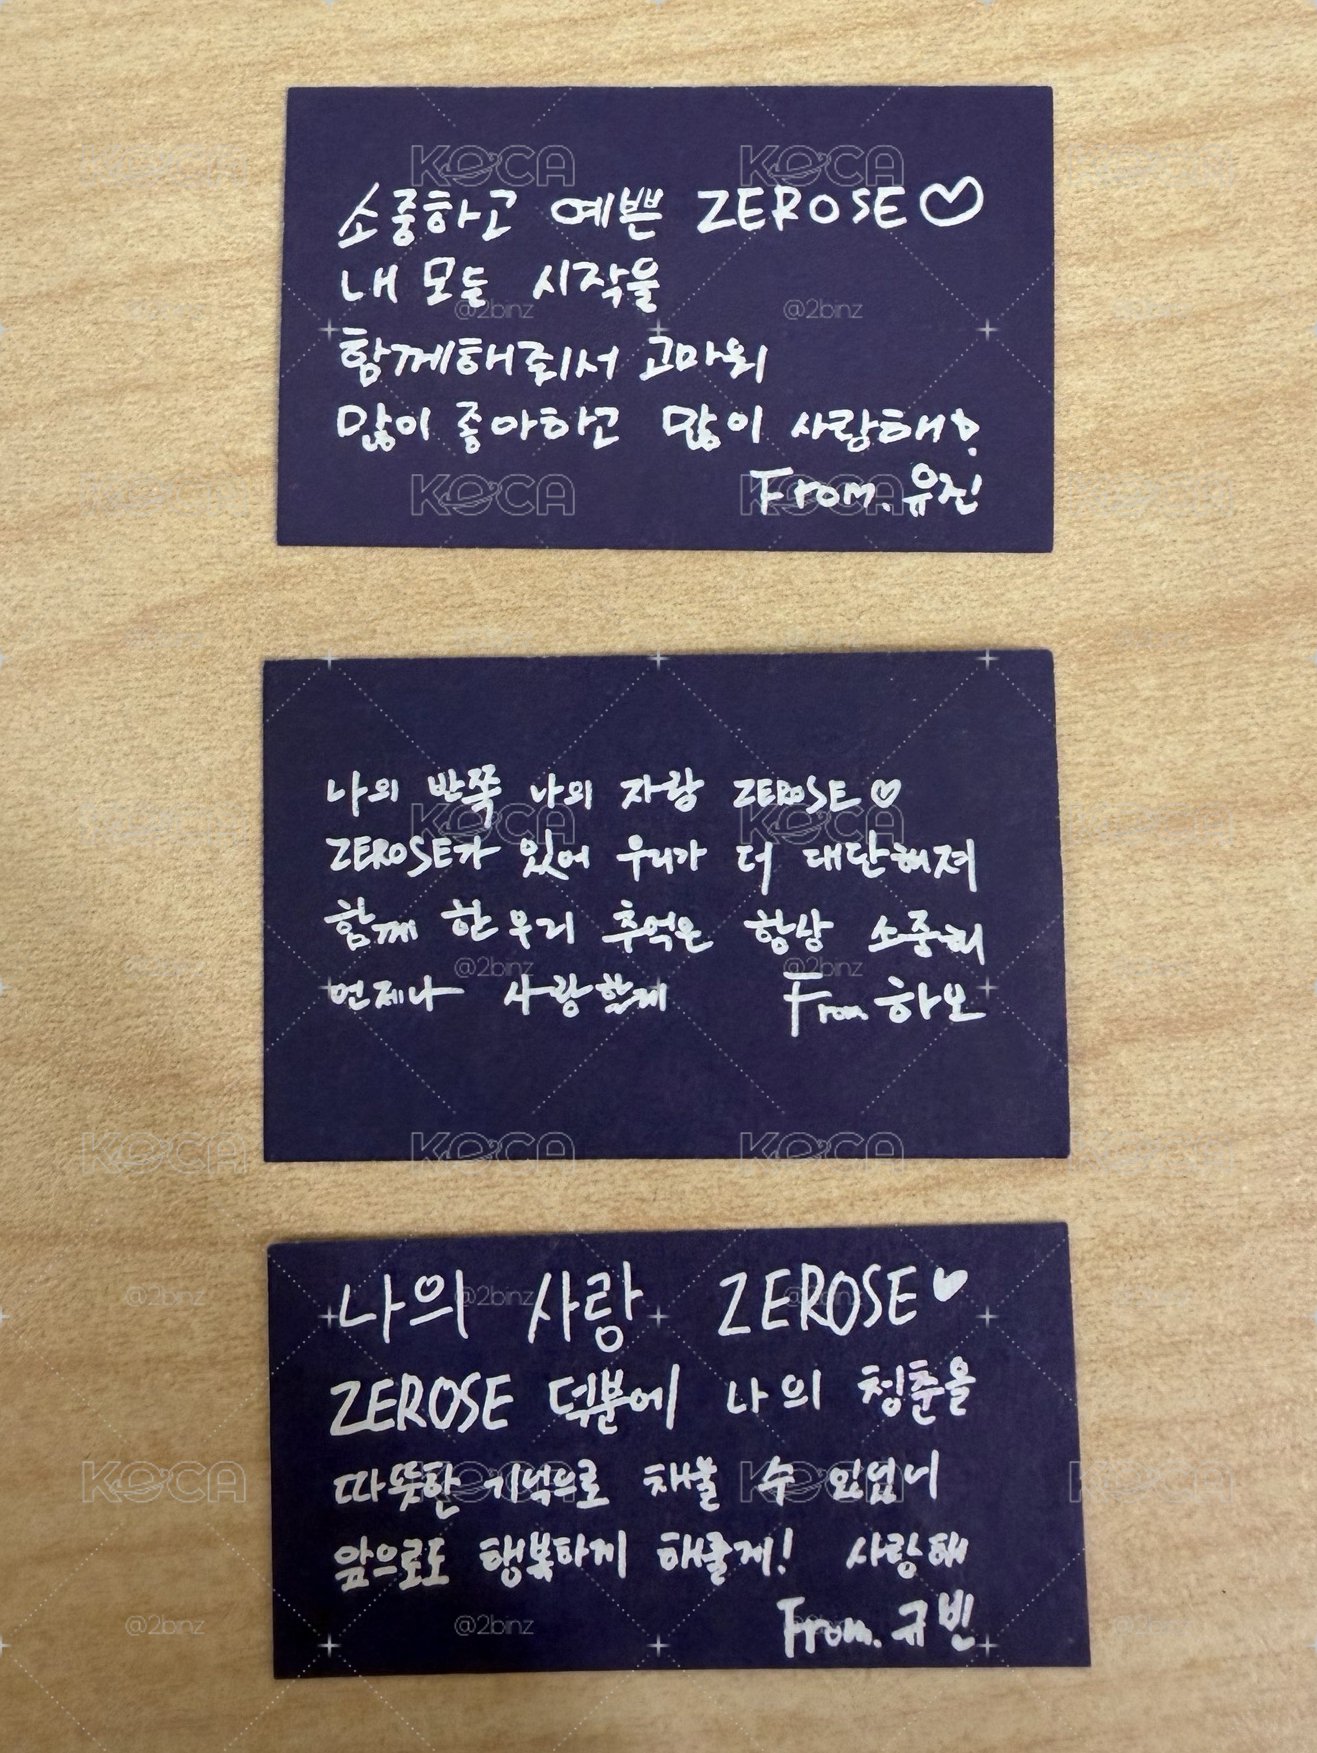 소중하고 예쁜 ZEROSE♡
내 모든 시작을
함께해줘서 고마워
많이 좋아하고 많이 사랑해!
From. 유진
나의 반쪽 나의 자랑 ZEROSE♡
ZEROSE가 있어 우리가 더 대단해져
함께 한 우리 추억은 항상 소중해
언제나 사랑할게 From. 하오
나의 사랑 ZEROSE♥
ZEROSE 덕분에 나의 청춘을
따뜻한 기억으로 채울 수 있었으니
앞으로도 행복하게 해줄게! 사랑해
From. 규빈
KOCA
@2binz